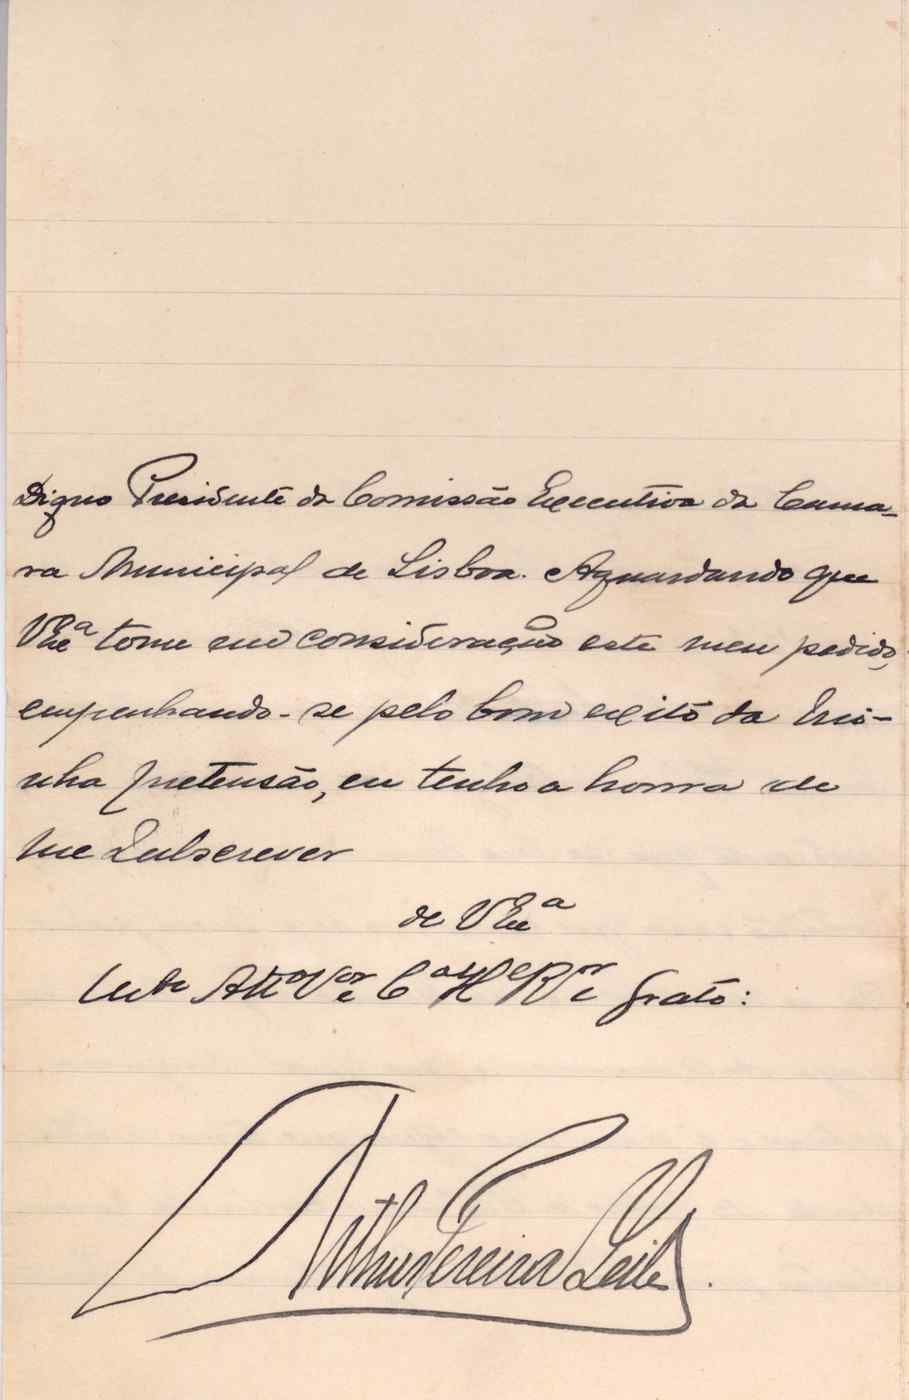 Digno Presidente da Comissão Executiva da Cama-
ra Municipal de Lisboa. Aguardando que
VExcª tome em consideração este meu pedido,
empenhando-se pelo bom exito da mi-
nha pretensão, eu tenho a honra de
me Subscrever
de VExcª
Attº Vor e Cº e grato:
Arthur Pereira Leite.